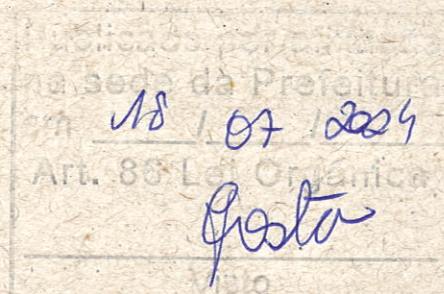 na sede da Prefeitura
em 18 / 07 / 2024
Art. 86 Lei Orgânica
Visto